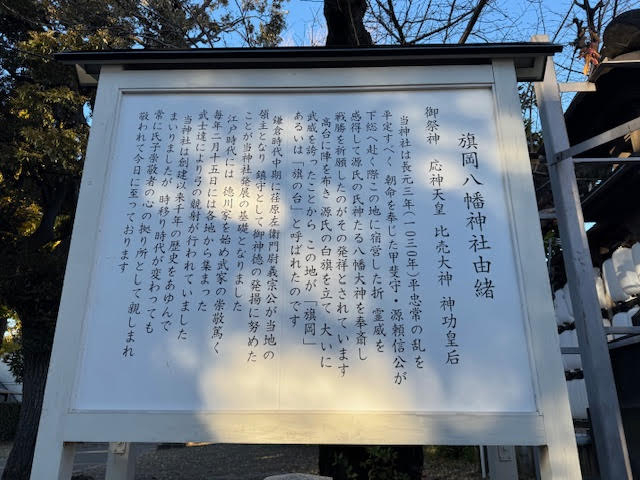 旗岡八幡神社由緒
御祭神 応神天皇 比売大神 神功皇后
当神社は長元三年(一〇三〇年)平忠常の乱を
平定すべく 朝命を奉じた甲斐守・源頼信公が
下総へ赴く際この地に宿営した折 霊威を
感得して源氏の氏神たる八幡大神を奉斎し
戦勝を祈願したのがその発祥とされています
高台に陣を布き 源氏の白旗を立て 大いに
武威を誇ったことから この地が 「旗岡」
あるいは 「旗の台」 と呼ばれたのです
鎌倉時代中期に荏原左衛門尉義宗公が当地の
領主となり 鎮守として御神徳の発揚に努めた
ことが当神社発展の基礎となりました
江戸時代には 徳川家を始め武家の崇敬篤く
毎年二月十五日には各地から集まった
武士達により弓の競射が行われていました
当神社は創建以来千年の歴史をあゆんで
まいりましたが 時移り時代が変わっても
常に氏子崇敬者の心の拠り所として親しまれ
敬われて今日に至っております